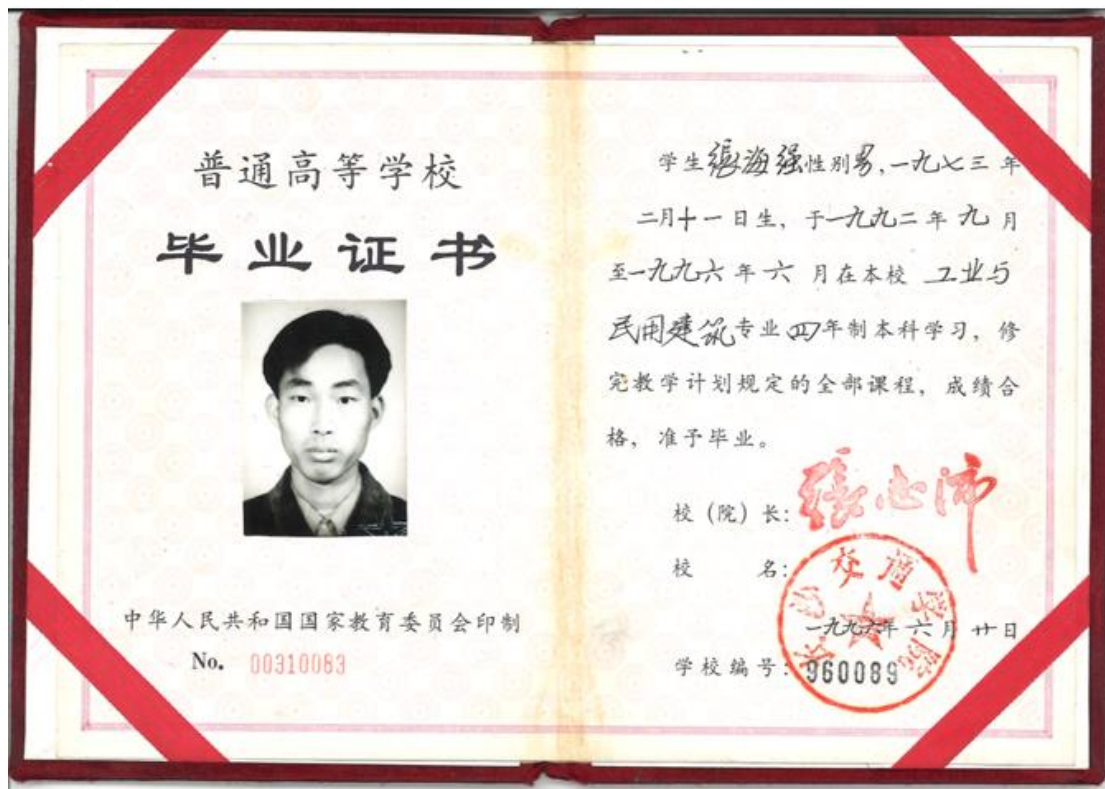 普通高等学校
毕业证书
中华人民共和国国家教育委员会印制
No. 00310083
学生張海强性别男,一九七三年
二月十一日生,于一九九二年九月
至一九九六年六月在本校工业与
民用建筑专业四年制本科学习,修
完教学计划规定的全部课程,成绩合
格,准予毕业。
校(院)长:張志沛
校名:
长沙交通学院
一九九六年六月廿日
学校编号:960089